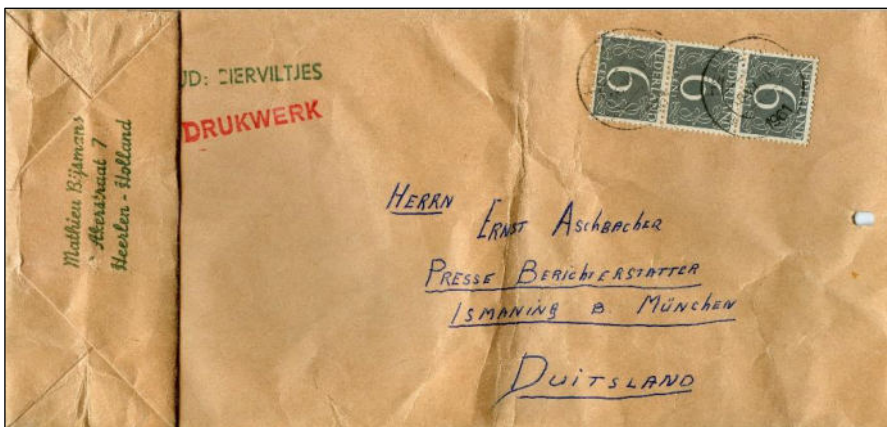 Mathieu Bijsmans
Akerstraat 7
Heerlen - Holland
UD: BIERVILTJES
DRUKWERK
6 NEDERLAND
6 NEDERLAND
6 NEDERLAND
1961
HERRN
ERNST ASCHBACHER
PRESSE BERICHTERSTATTER
ISMANING B. MÜNCHEN
DUITSLAND